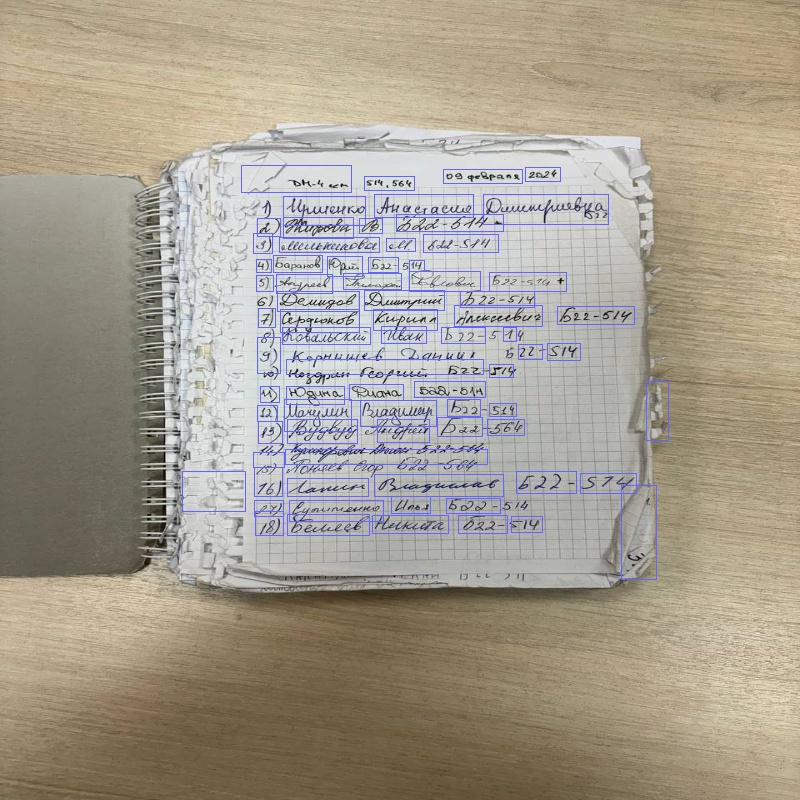 ДМ-4 сем 514, 564 09 февраля 2024
1) Ириенко Анастасия Дмитриевна Б22
2) Жирова В. Б22-514
3) Мельникова М. Б22-514
4) Баранов Юрий Б22-514
5) Андреев Тимофей Павлович Б22-514
6) Демидов Дмитрий Б22-514
7) Сердюков Кирилл Алексеевич Б22-514
8) Ковальский Иван Б22-514
9) Корнишев Даниил Б22-514
10) Ноздрин Георгий Б22-514
11) Юдина Диана Б22-514
12) Мачулин Владимир Б22-514
13) Вудвуд Андрей Б22-564
14) Б22-564
15) Поняев Егор Б22-564
16) Лапин Владислав Б22-514
17) Супитенко Илья Б22-514
18) Беляев Никита Б22-514